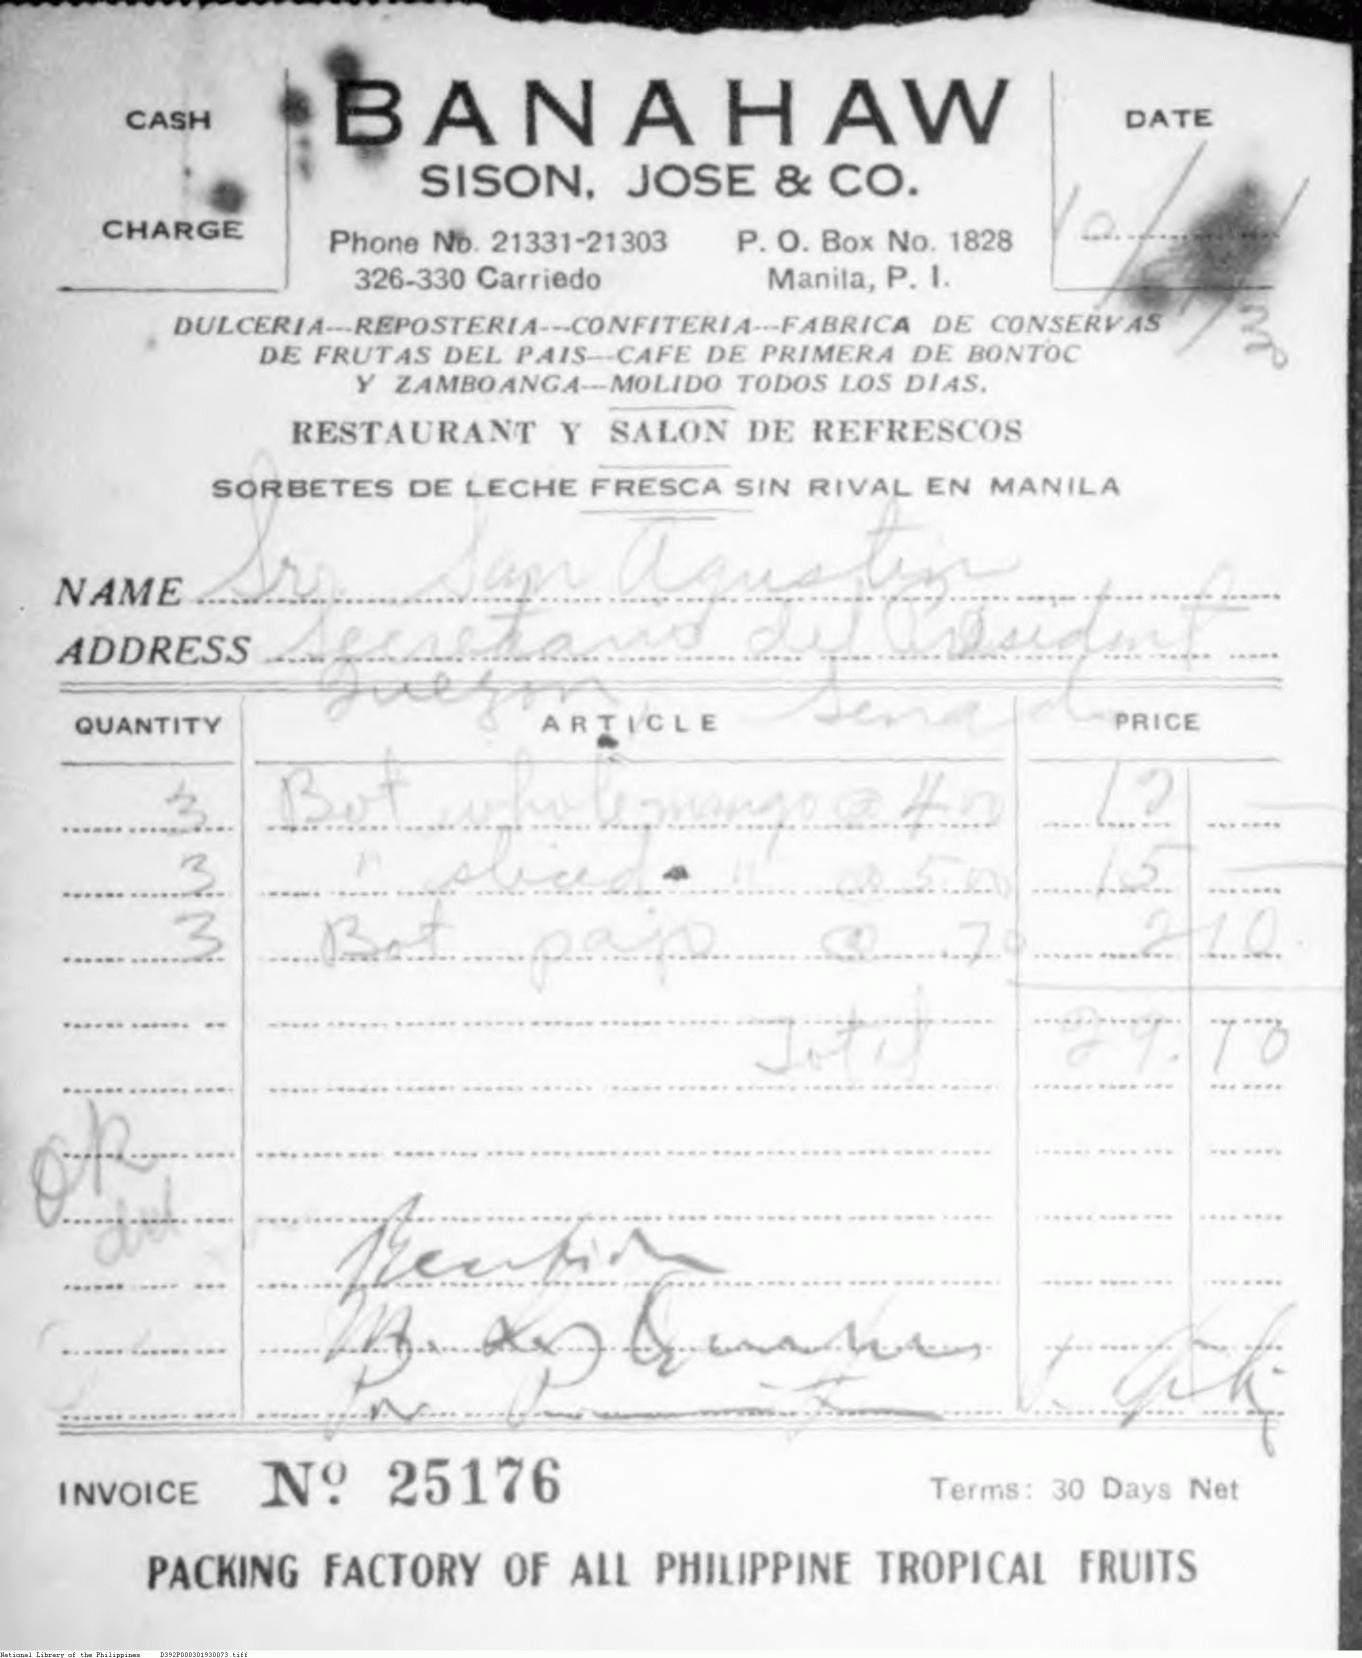 CASH
BANAHAW
DATE
SISON, JOSE & CO.
CHARGE
Phone No. 21331-21303 P. O. Box No. 1828
326-330 Carriedo Manila, P. I.
10/
DULCERIA---REPOSTERIA---CONFITERIA---FABRICA DE CONSERVAS
DE FRUTAS DEL PAIS---CAFE DE PRIMERA DE BONTOC
Y ZAMBOANGA---MOLIDO TODOS LOS DIAS.
RESTAURANT Y SALON DE REFRESCOS
SORBETES DE LECHE FRESCA SIN RIVAL EN MANILA
NAME Sr. San Agustin
ADDRESS Secretario del President
Quezon, Senado
QUANTITY ARTICLE PRICE
3 Bot whole mango @ 4 00 12 —
3 " sliced " @ 5 00 15 —
3 Bot pajo @ .70 2 10
Total 29.10
OK
Por
INVOICE Nº 25176 Terms: 30 Days Net
PACKING FACTORY OF ALL PHILIPPINE TROPICAL FRUITS
National Library of the Philippines D392P000301930073.tiff